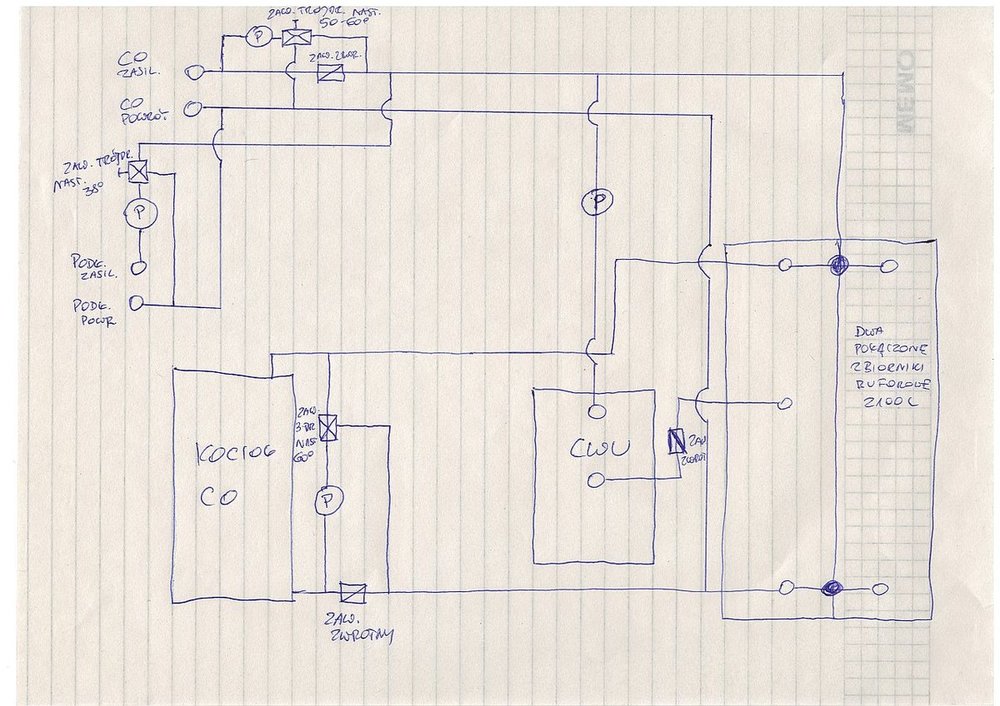 ZAW. TRÓJDR. NAST.
50-60°
P
CO
ZASIL.
ZAW. ZWR.
CO
POWRÓT
MEMO
ZAW. TRÓJDR.
NAST.
38°
P
P
PODŁ.
ZASIL.
PODŁ.
POWR
DWA
POŁĄCZONE
ZBIORNIKI
BUFOROWE
2100L
ZAW.
3-DR
NAST
60°
KOCIOŁ
CO
CWU
ZAW
ZWROT
P
ZAW.
ZWROTNY